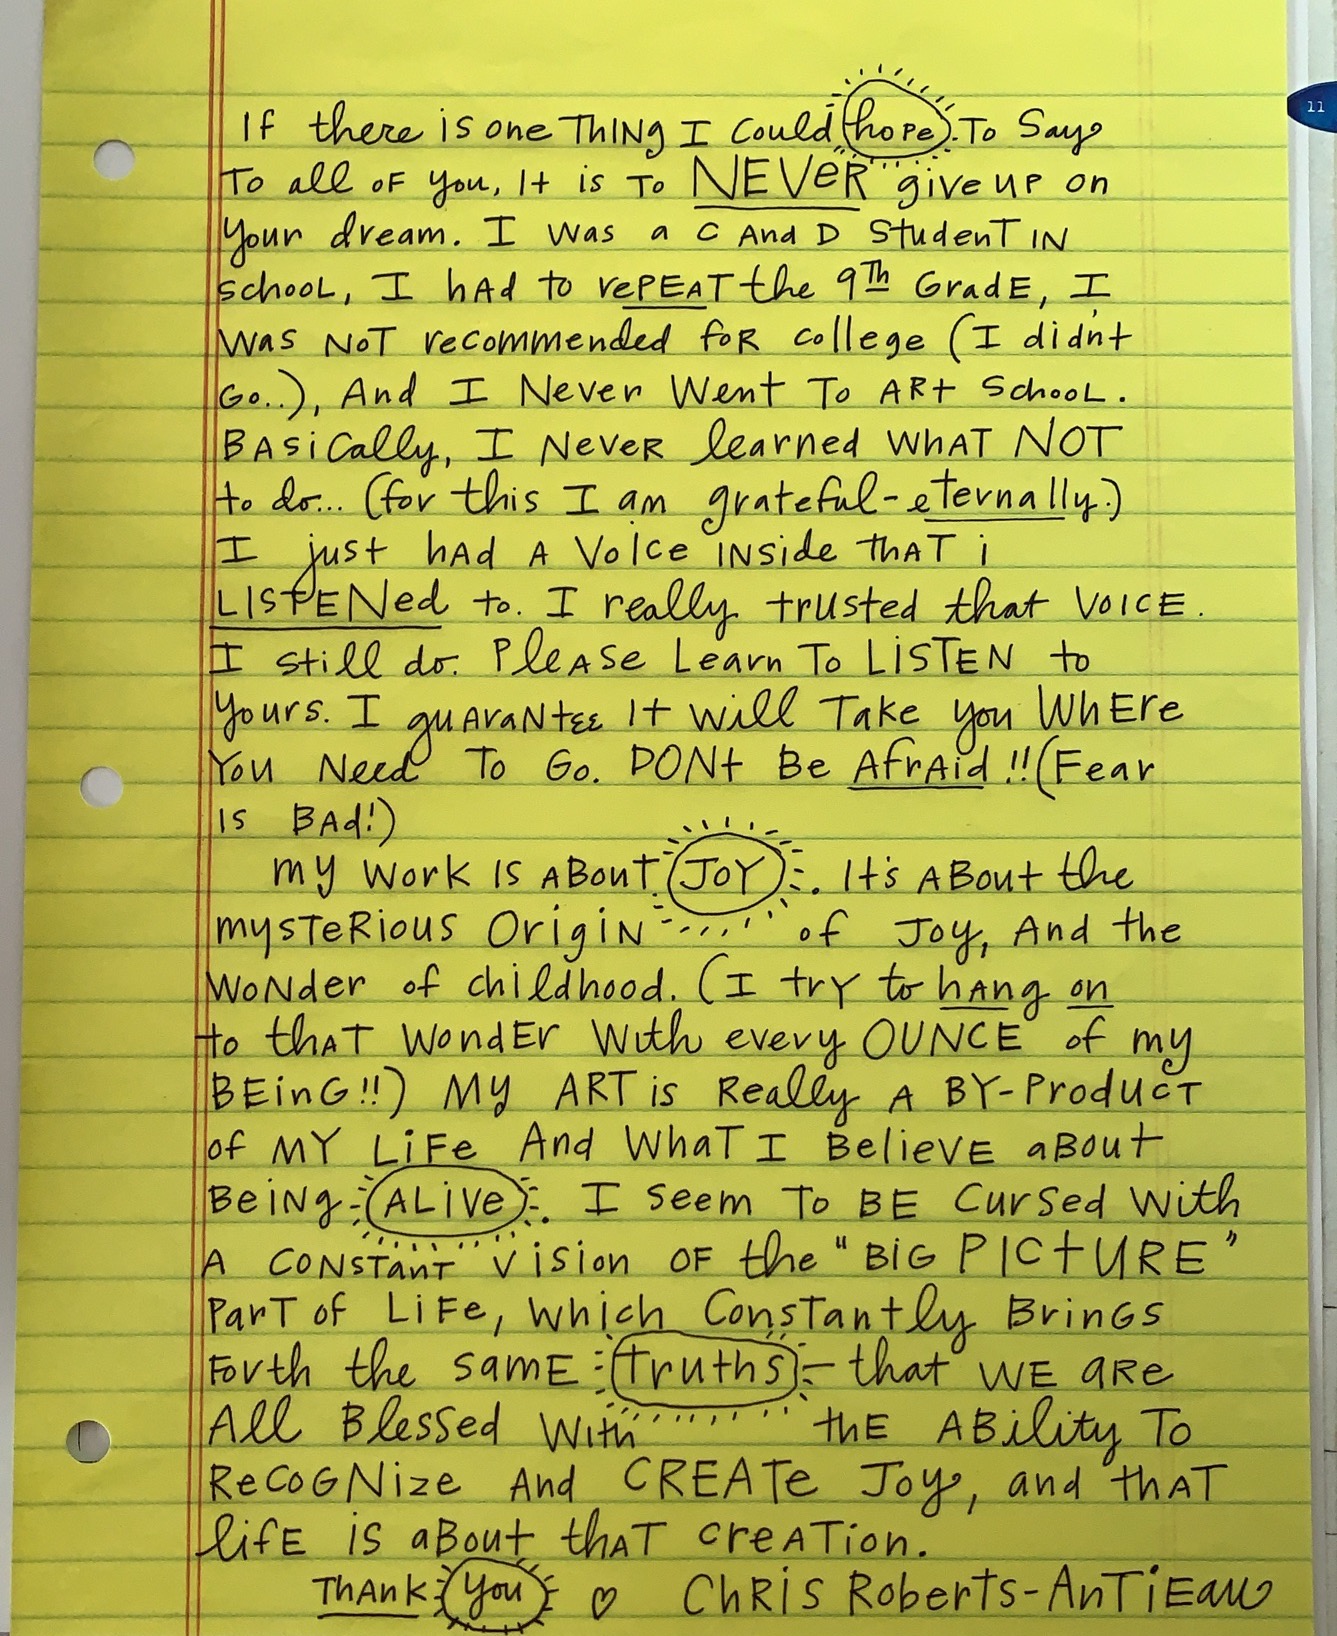 If there is one THING I Could hope To Say
To all OF you, It is To NEVER give up on
Your dream. I Was a C And D StudenT IN
school, I hAd to rePEAT the 9Th GradE, I
was NoT recommended foR college (I didnt
Go..), And I Never Went To ARt School.
BASiCally, I NeveR learned WhAT NOT
to do... (for this I am grateful-eternally.)
I just hAd A Voice INSide thAT i
LISTENed to. I really trusted that VOICE.
I still do. PleASe Learn To LISTEN to
Yours. I guAraNtEE It will Take you WhEre
You Need To Go. DONt Be AfrAid!! (Fear
IS BAd!)
My Work IS ABouT JOY. It's ABout the
mysTeRious OrigiN of Joy, And the
WoNder of childhood. (I trY to hANg on
to thAT WondEr With every OUNCE of my
BEinG!!) My ART is Really A BY-ProducT
of MY LiFe And WhaT I BelievE aBout
BeiNg ALiVe. I Seem To BE Cursed With
A CONSTanT Vision OF the "BiG PICtURE"
ParT of LiFe, Which ConsTantly BrinGS
Forth the SamE Truths - that WE aRe
All Blessed WiTh thE ABility To
ReCoGNize And CREATe Joy, and thAT
lifE is aBout thAT creATion.
ThAnk You ♡ ChRiS RobertS-AnTiEau
11